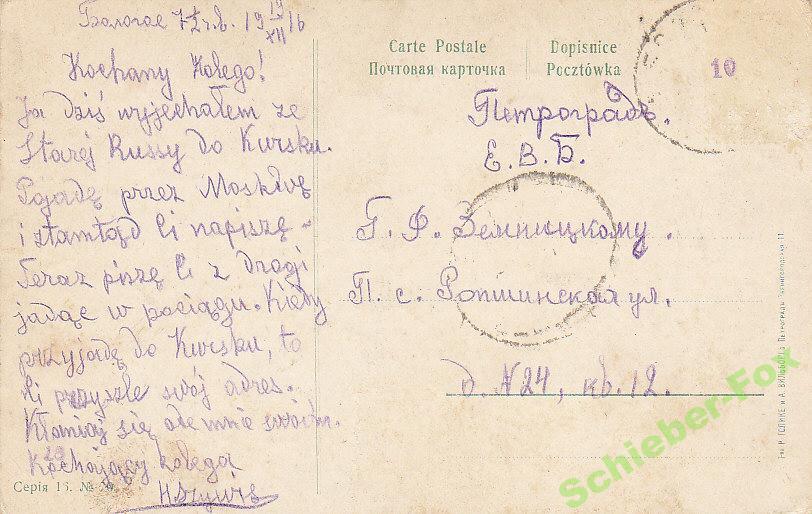 Бологое 19 19/XII 16
Carte Postale
Почтовая карточка
Dopisnice
Pocztówka
10
Kochany Kolego!
Ja dziś wyjechałem ze
Starej Russy do Kurska.
Pojadę przez Moskwę
i stamtąd Ci napiszę –
Teraz piszę Ci z drogi
jadąc w pociągu. Kiedy
przyjadę do Kurska, to
Ci przyszlę swój adres.
Kłaniaj się ode mnie swoim.
Kochający kolega
Серія 15. №
Петроградъ.
Е. В. Б.
Г. Ф. Земницкому.
П. с. Ропшинская ул.
д. N 24, кв. 12.
Р. ГОЛИКЕ и А. ВИЛЬБОРГЪ Петроградъ Звенигородская 11
Schieber-Fox